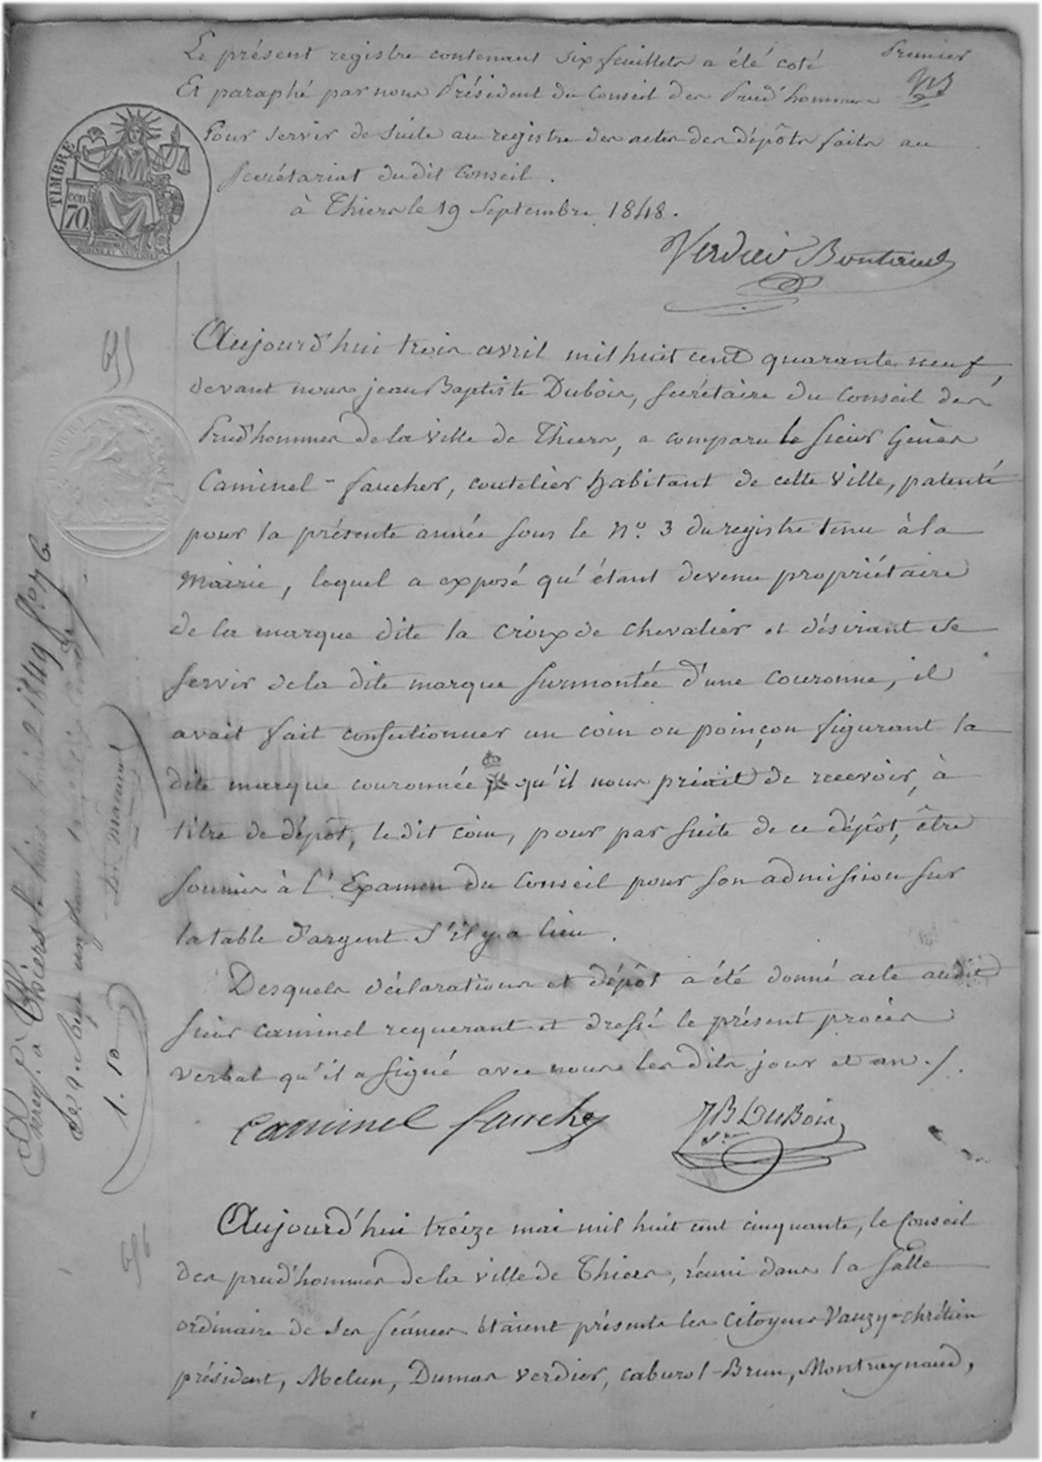 Le présent registre contenant six feuillets a été coté
Premier
Et paraphé par nous Président du Conseil des Prud'hommes
Pour servir de suite au registre des actes des dépôts faits au
Secrétariat dudit Conseil.
à Thiers le 19 Septembre 1848.
TIMBRE
70
Verdier
95
Aujourd'hui trois avril mil huit cent quarante neuf,
devant nous jean Baptiste Dubois, secrétaire du Conseil des
Prud'hommes de la ville de Thiers, a comparu le sieur Genès
Caminel-faucher, coutelier habitant de cette ville, patenté
pour la présente année sous le N.º 3 du registre tenu à la
Mairie, lequel a exposé qu'étant devenu propriétaire
de la marque dite la croix de chevalier et désirant se
servir de la dite marque surmontée d'une couronne, il
avait fait confectionner un coin ou poinçon figurant la
dite marque couronnée qu'il nous priait de recevoir, à
titre de dépôt, le dit coin, pour par suite de ce dépôt, être
soumis à l'Examen du Conseil pour son admission sur
la table d'argent s'il y a lieu.
Desquels déclarations et dépôt a été donné acte audit
sieur caminel requerant et dressé le présent procès
verbal qu'il a signé avec nous les dits jour et an ./.
Caminel faucher
JB Dubois
Enreg. à Thiers le 1849
1. 10
96
Aujourd'hui treize mai mil huit cent cinquante, le Conseil
des prud'hommes de la ville de Thiers, réuni dans la salle
ordinaire de ses séances étaient présents les citoyens Vauzy-chrétien
président, Melun, Dumas Verdier, cabirol-Brun, Montraynaud,